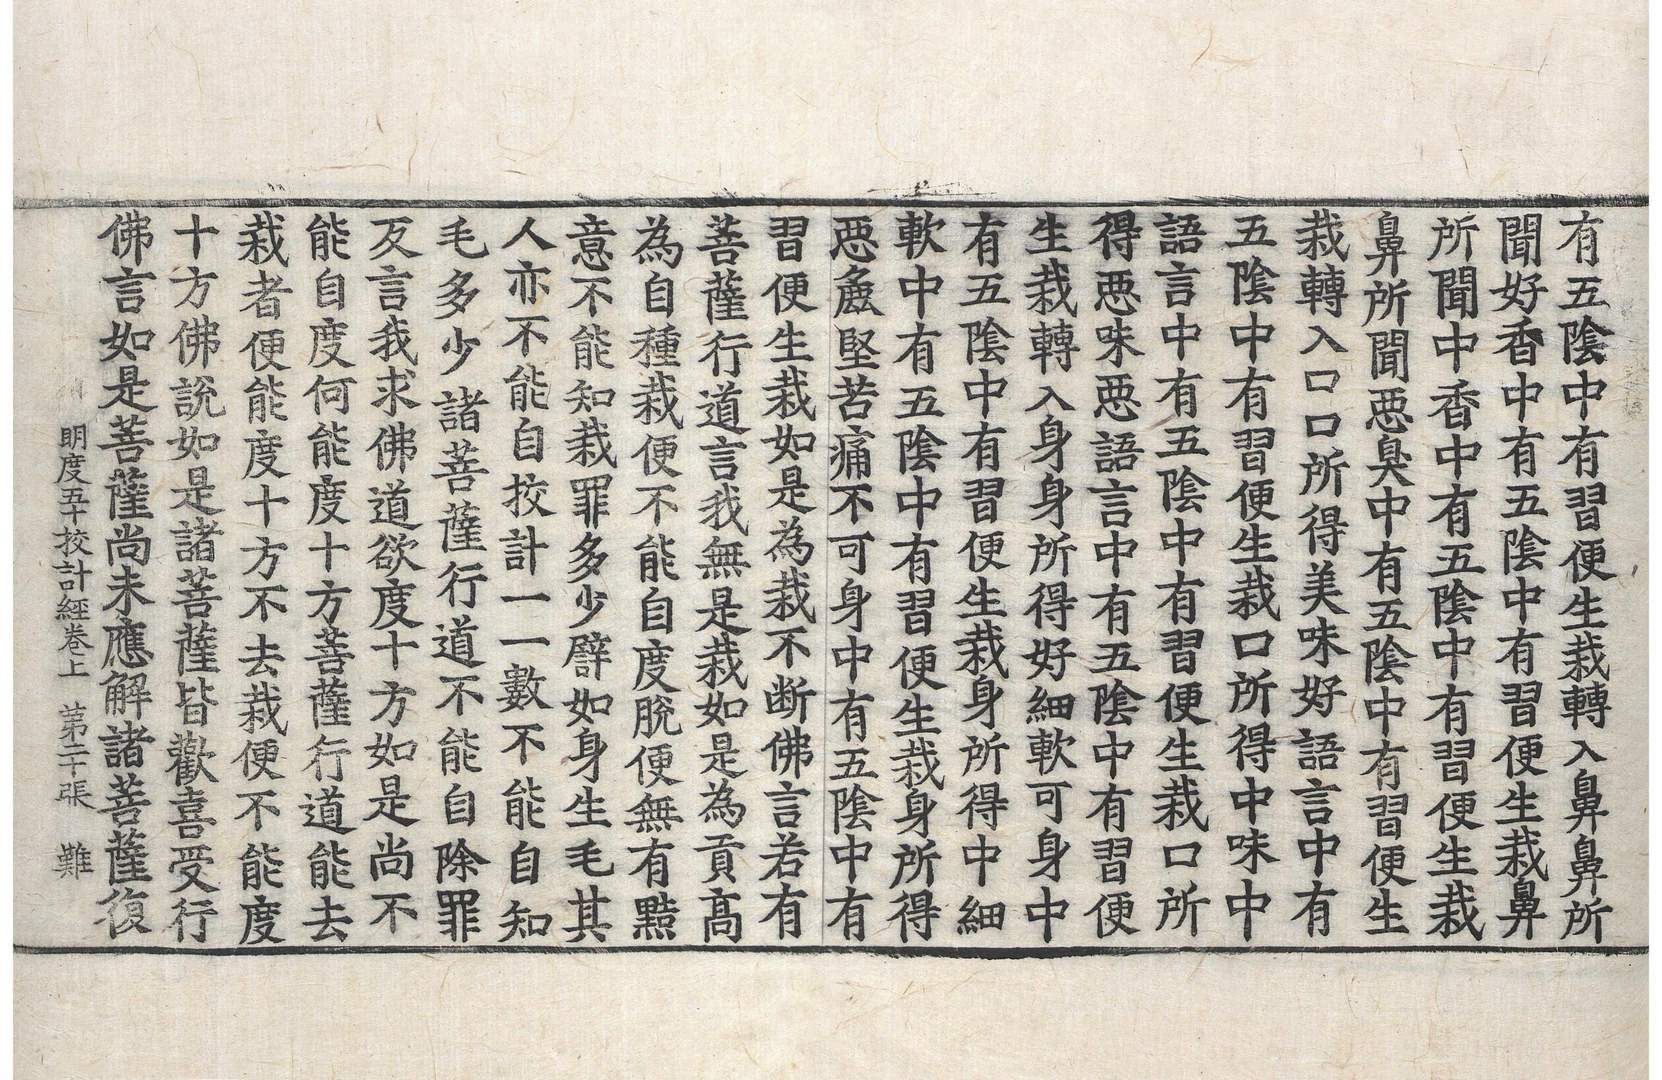 有五陰中有習便生栽轉入鼻鼻所
聞好香中有五陰中有習便生栽鼻
所聞中香中有五陰中有習便生栽
鼻所聞惡臭中有五陰中有習便生
栽轉入口口所得美味好語言中有
五陰中有習便生栽口所得中味中
語言中有五陰中有習便生栽口所
得惡味惡語言中有五陰中有習便
生栽轉入身身所得好細軟可身中
有五陰中有習便生栽身所得中細
軟中有五陰中有習便生栽身所得
惡麁堅苦痛不可身中有五陰中有
習便生栽如是為栽不断佛言若有
菩薩行道言我無是栽如是為貢高
為自種栽便不能自度脫便無有黠
意不能知栽罪多少譬如身生毛其
人亦不能自挍計一一數不能自知
毛多少諸菩薩行道不能自除罪
反言我求佛道欲度十方如是尚不
能自度何能度十方菩薩行道能去
栽者便能度十方不去栽便不能度
十方佛說如是諸菩薩皆歡喜受行
佛言如是菩薩尚未應解諸菩薩復
明度五十挍計經卷上 第二十張 難